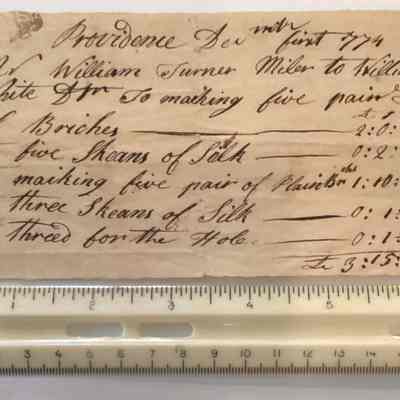 Providence Decmbr first 1774
William Turner Miler to Willi
White Dtr To maiking five pair
Briches 2:0:
five Skeans of Silk 0:2:
maiking five pair of Plain Brchs 1:10:
three Skeans of Silk 0:1:
threed for the Hole 0:1:
3:15:
1 2 3 4 5
3 4 5 6 7 8 9 10 11 12 13 14